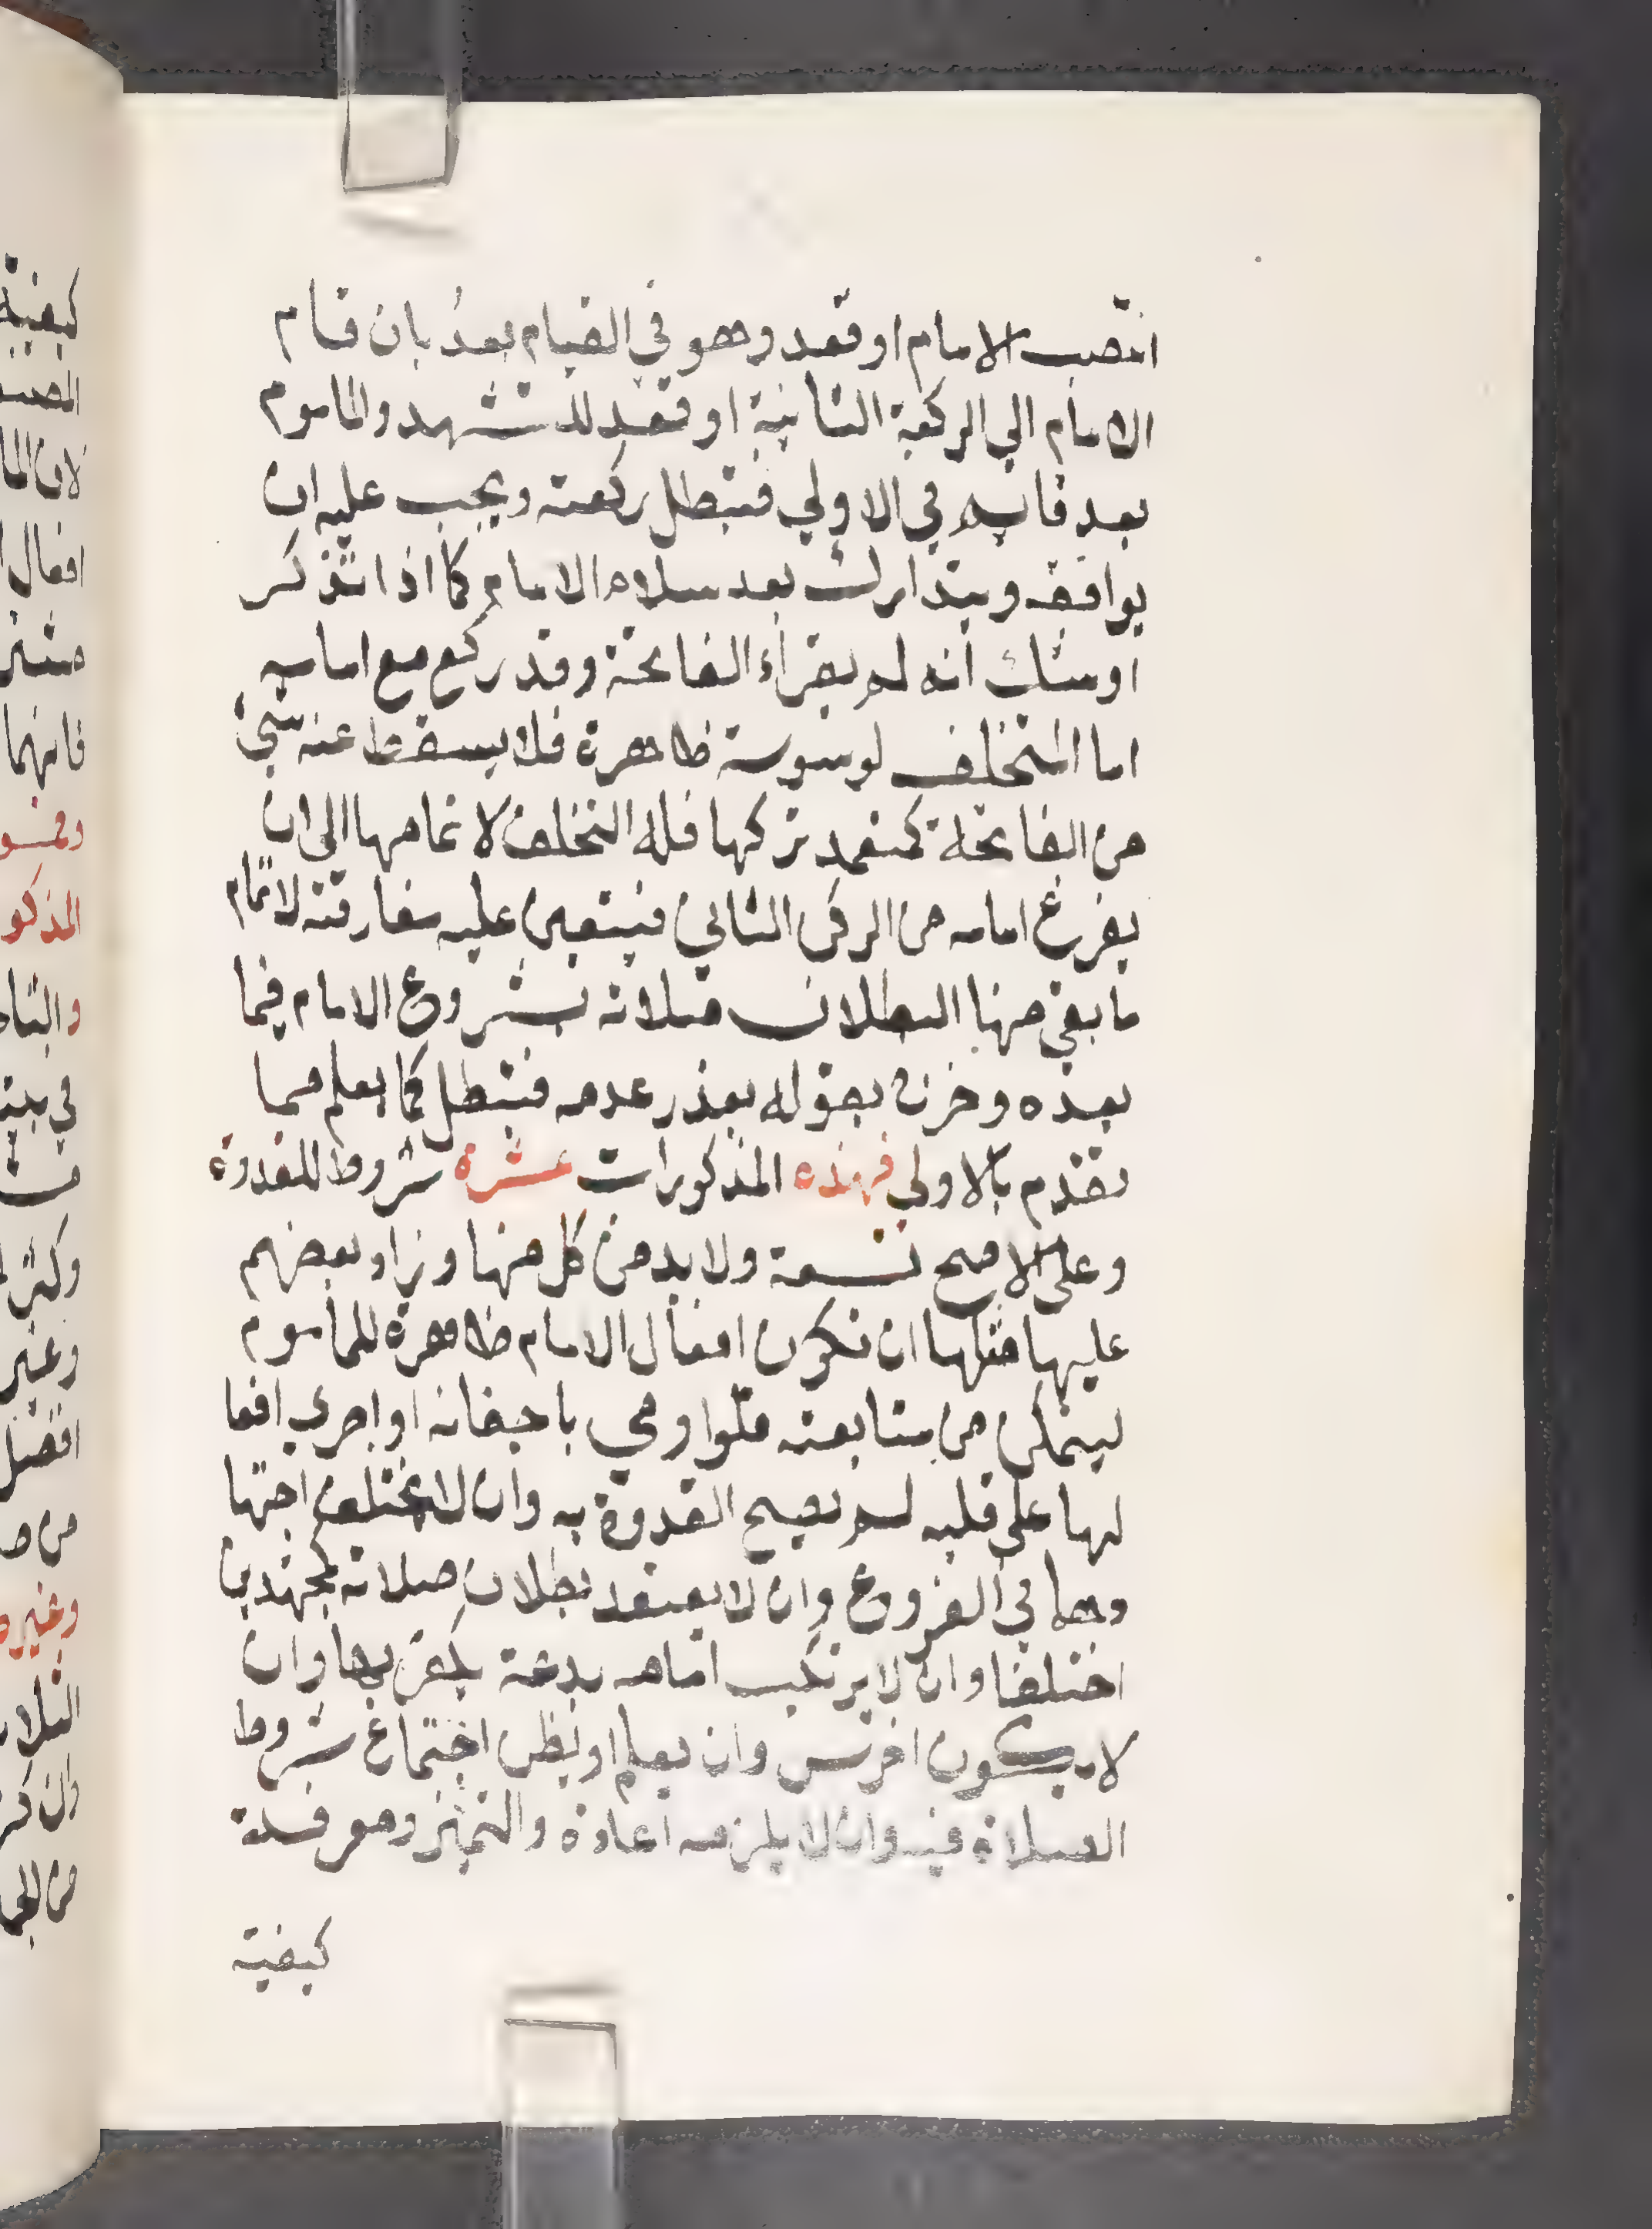 انتصب الامام او قعد وهو في القيام بعدُ بان قام
الامام الي الركعة الثانية او قعد للتشهد والماموم
بعد قائم في الاولي فتبطل ركعته ويجب عليه ان
يوافقه ويتدارك بعد سلام الامام كما اذا تذكر
او شك انه لم يقرأ الفاتحة وقد ركع مع امامه
اما المتخلف لوسوسة ظاهرة فلا يسقط عنه شيء
من الفاتحة كمتعمد تركها فله التخلف لاتمامها الي ان
يفرغ امامه من الركن الثاني فيتعين عليه مفارقته لاتمام
ما بقي منها لبطلان صلاته بشروع الامام فيما
بعده وخرج بقوله بعذر عدمه فتبطل كما يعلم مما
تقدم بالاولي فهذه المذكورات عشرة شروط للقدوة
وعلي الاصح تسعة ولا بد من كل منها وزاد بعضهم
عليها مثلها ان تكون افعال الامام ظاهرة للماموم
ليتمكن من متابعته فلو اومي باجفانه او اجري افعا
لها علي قلبه لم تصح القدوة به وان لا يختلف اجتها
دهما في الفروع وان لا يعتقد بطلان صلاته كمجتهدين
اختلفا وان لا يرتكب امامه بدعة يكفر بها وان
لا يكون اخرس وان يعلم او يظن اجتماع شروط
الصلاة فيه وان لا يلزمه اعادة والتمييز ومعرفة
كيفية
كيفية
لان الما
افعال ا
فانهما
المذكو
وغير
افضل
من
وغيره